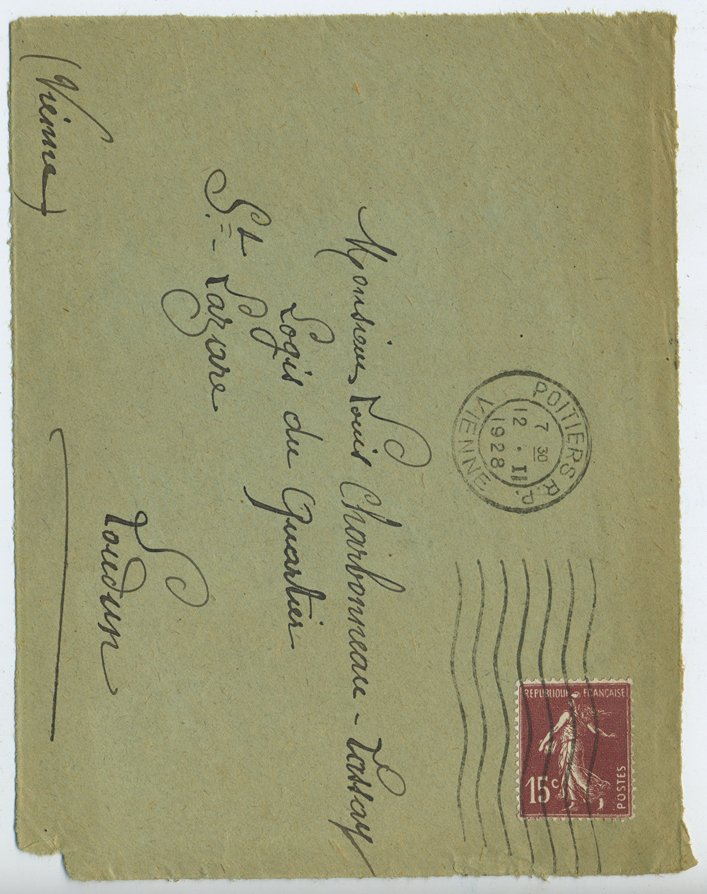 POITIERS R.P.
7 30
12 . II
1928
VIENNE
REPUBLIQUE FRANÇAISE
15 c
POSTES
Monsieur Louis Charbonneau-Lassay
Logis du Quartier
St= Lazare
Loudun
(Vienne)